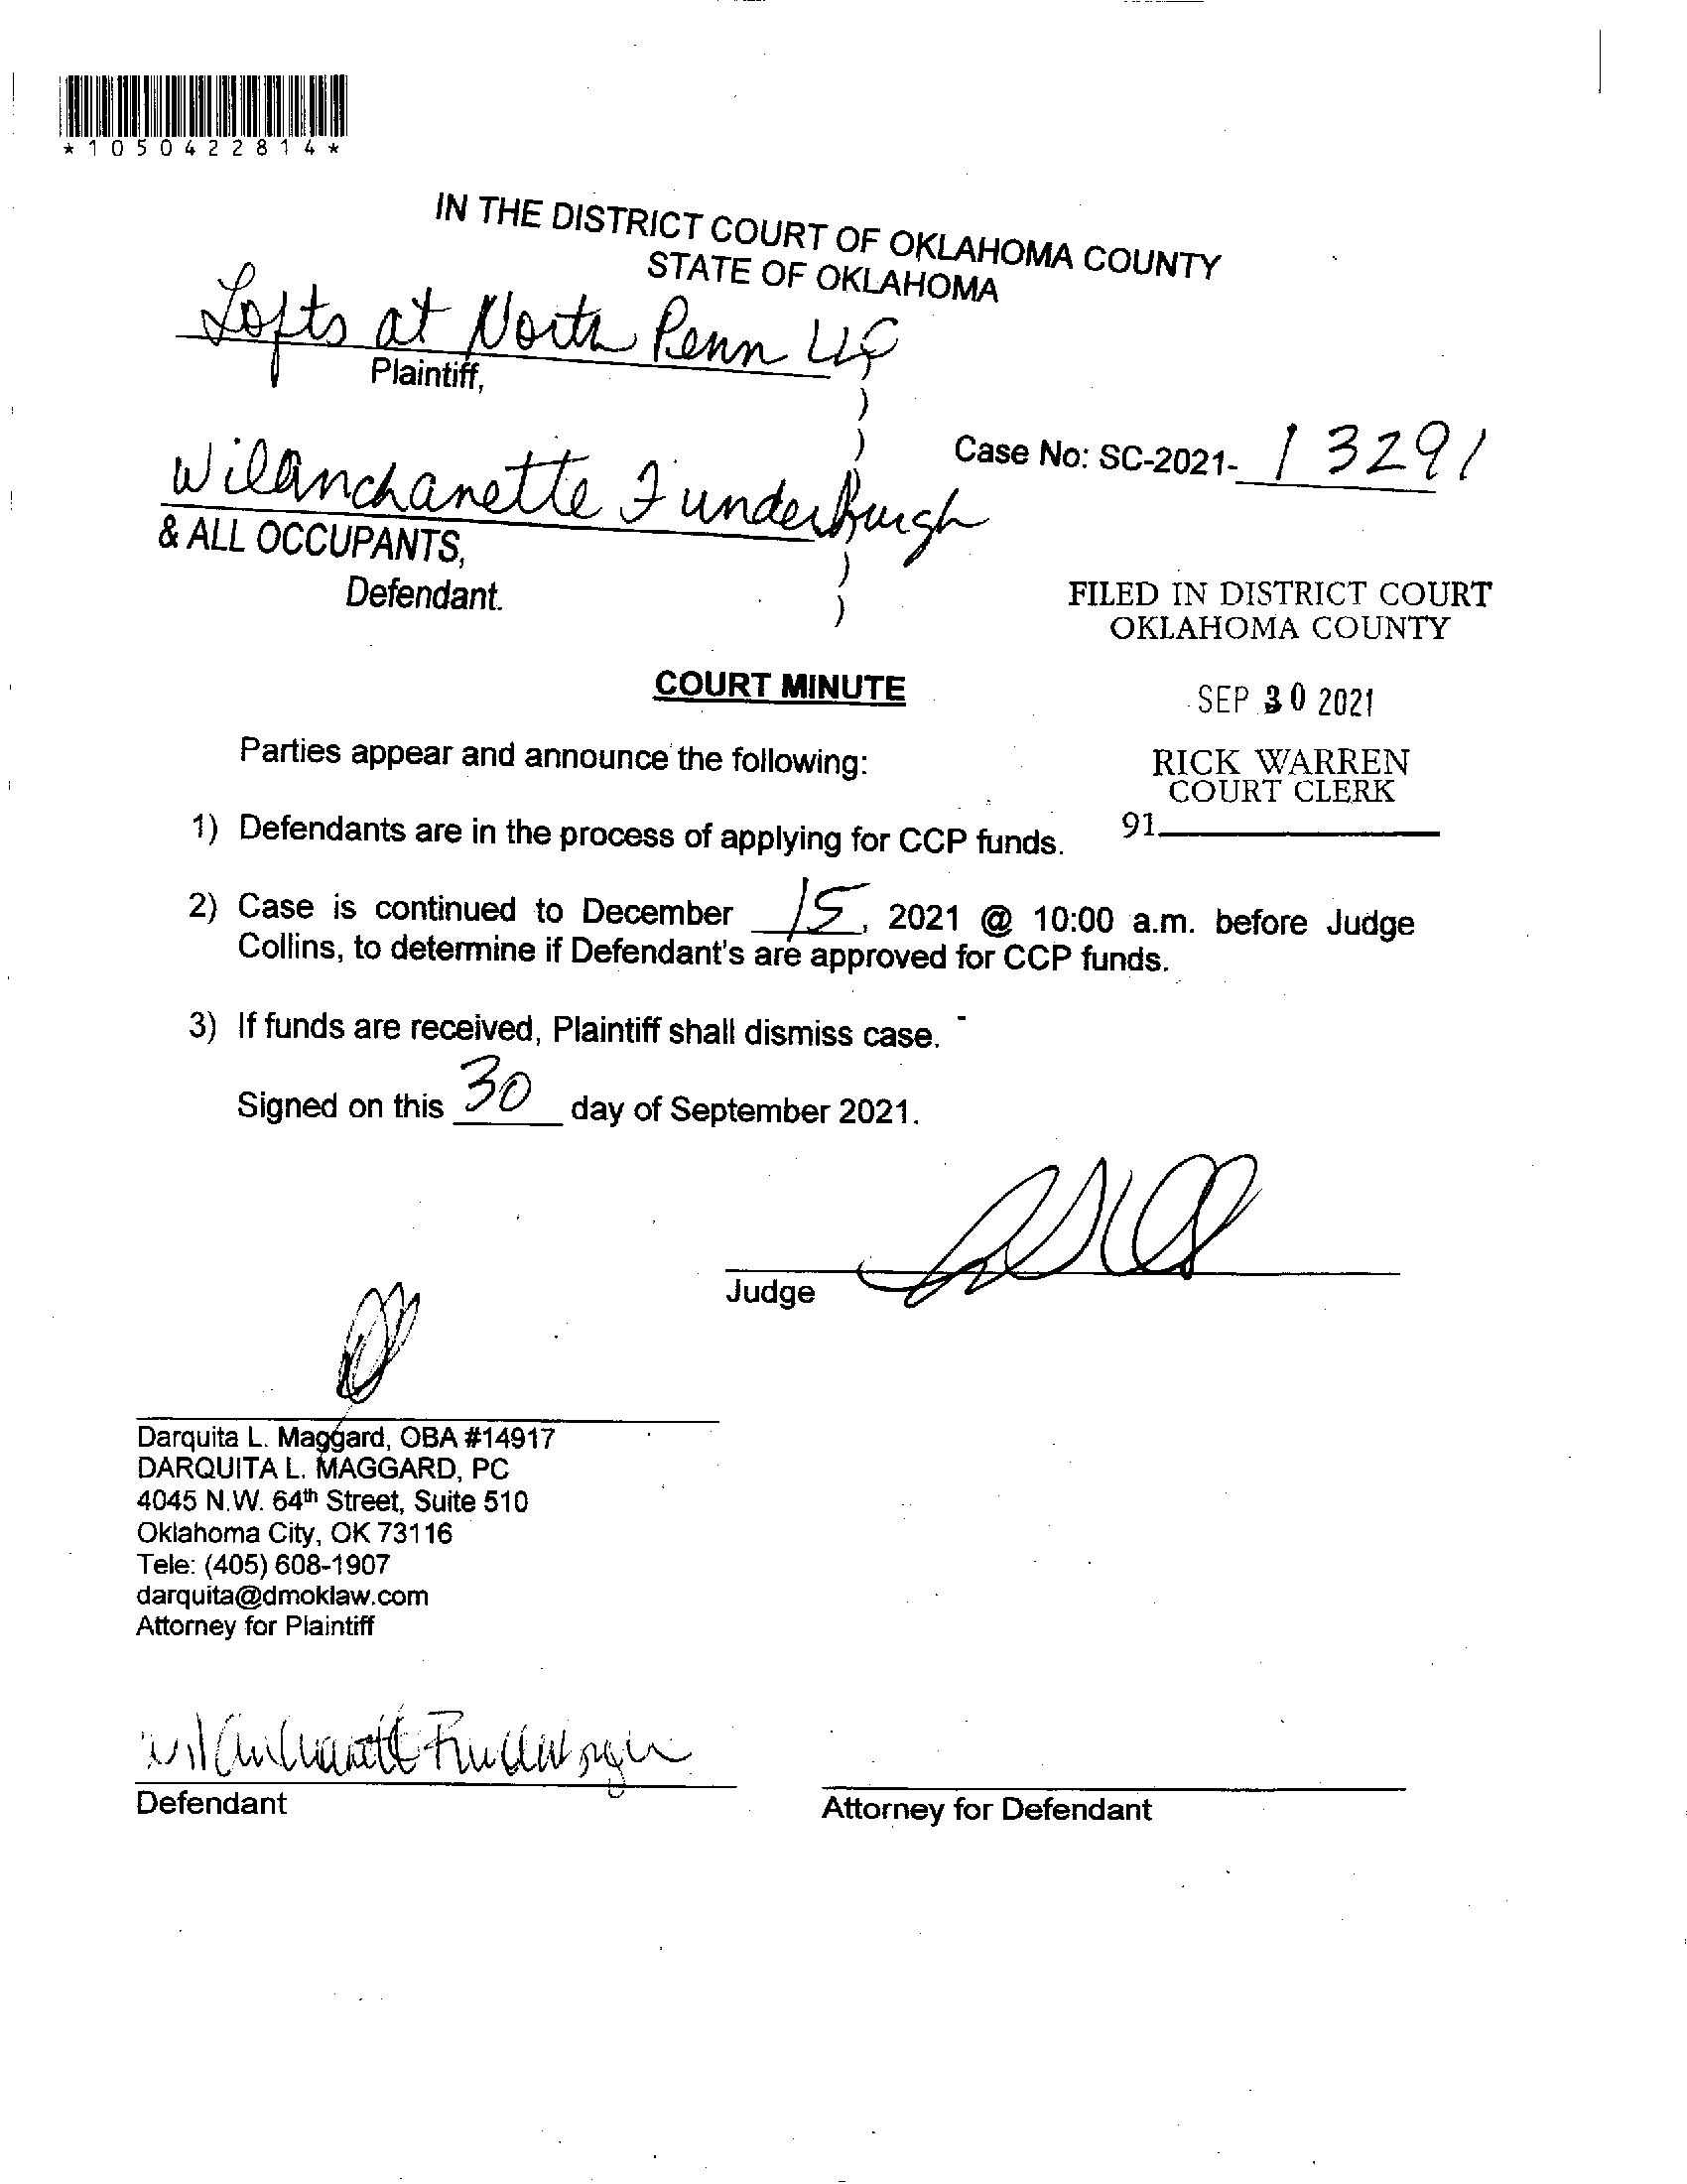 *1050422814*
IN THE DISTRICT COURT OF OKLAHOMA COUNTY
STATE OF OKLAHOMA
Lofts at North Penn LLC
Plaintiff,
)
)
)
Case No: SC-2021- 13291
Wilanchanette Funderburgh
& ALL OCCUPANTS,
)
Defendant.
)
FILED IN DISTRICT COURT
OKLAHOMA COUNTY
COURT MINUTE
SEP 30 2021
Parties appear and announce the following:
RICK WARREN
COURT CLERK
91
1) Defendants are in the process of applying for CCP funds.
2) Case is continued to December 15, 2021 @ 10:00 a.m. before Judge
Collins, to determine if Defendant's are approved for CCP funds.
3) If funds are received, Plaintiff shall dismiss case.
Signed on this 30 day of September 2021.
Judge
Darquita L. Maggard, OBA #14917
DARQUITA L. MAGGARD, PC
4045 N.W. 64th Street, Suite 510
Oklahoma City, OK 73116
Tele: (405) 608-1907
darquita@dmoklaw.com
Attorney for Plaintiff
Defendant
Attorney for Defendant